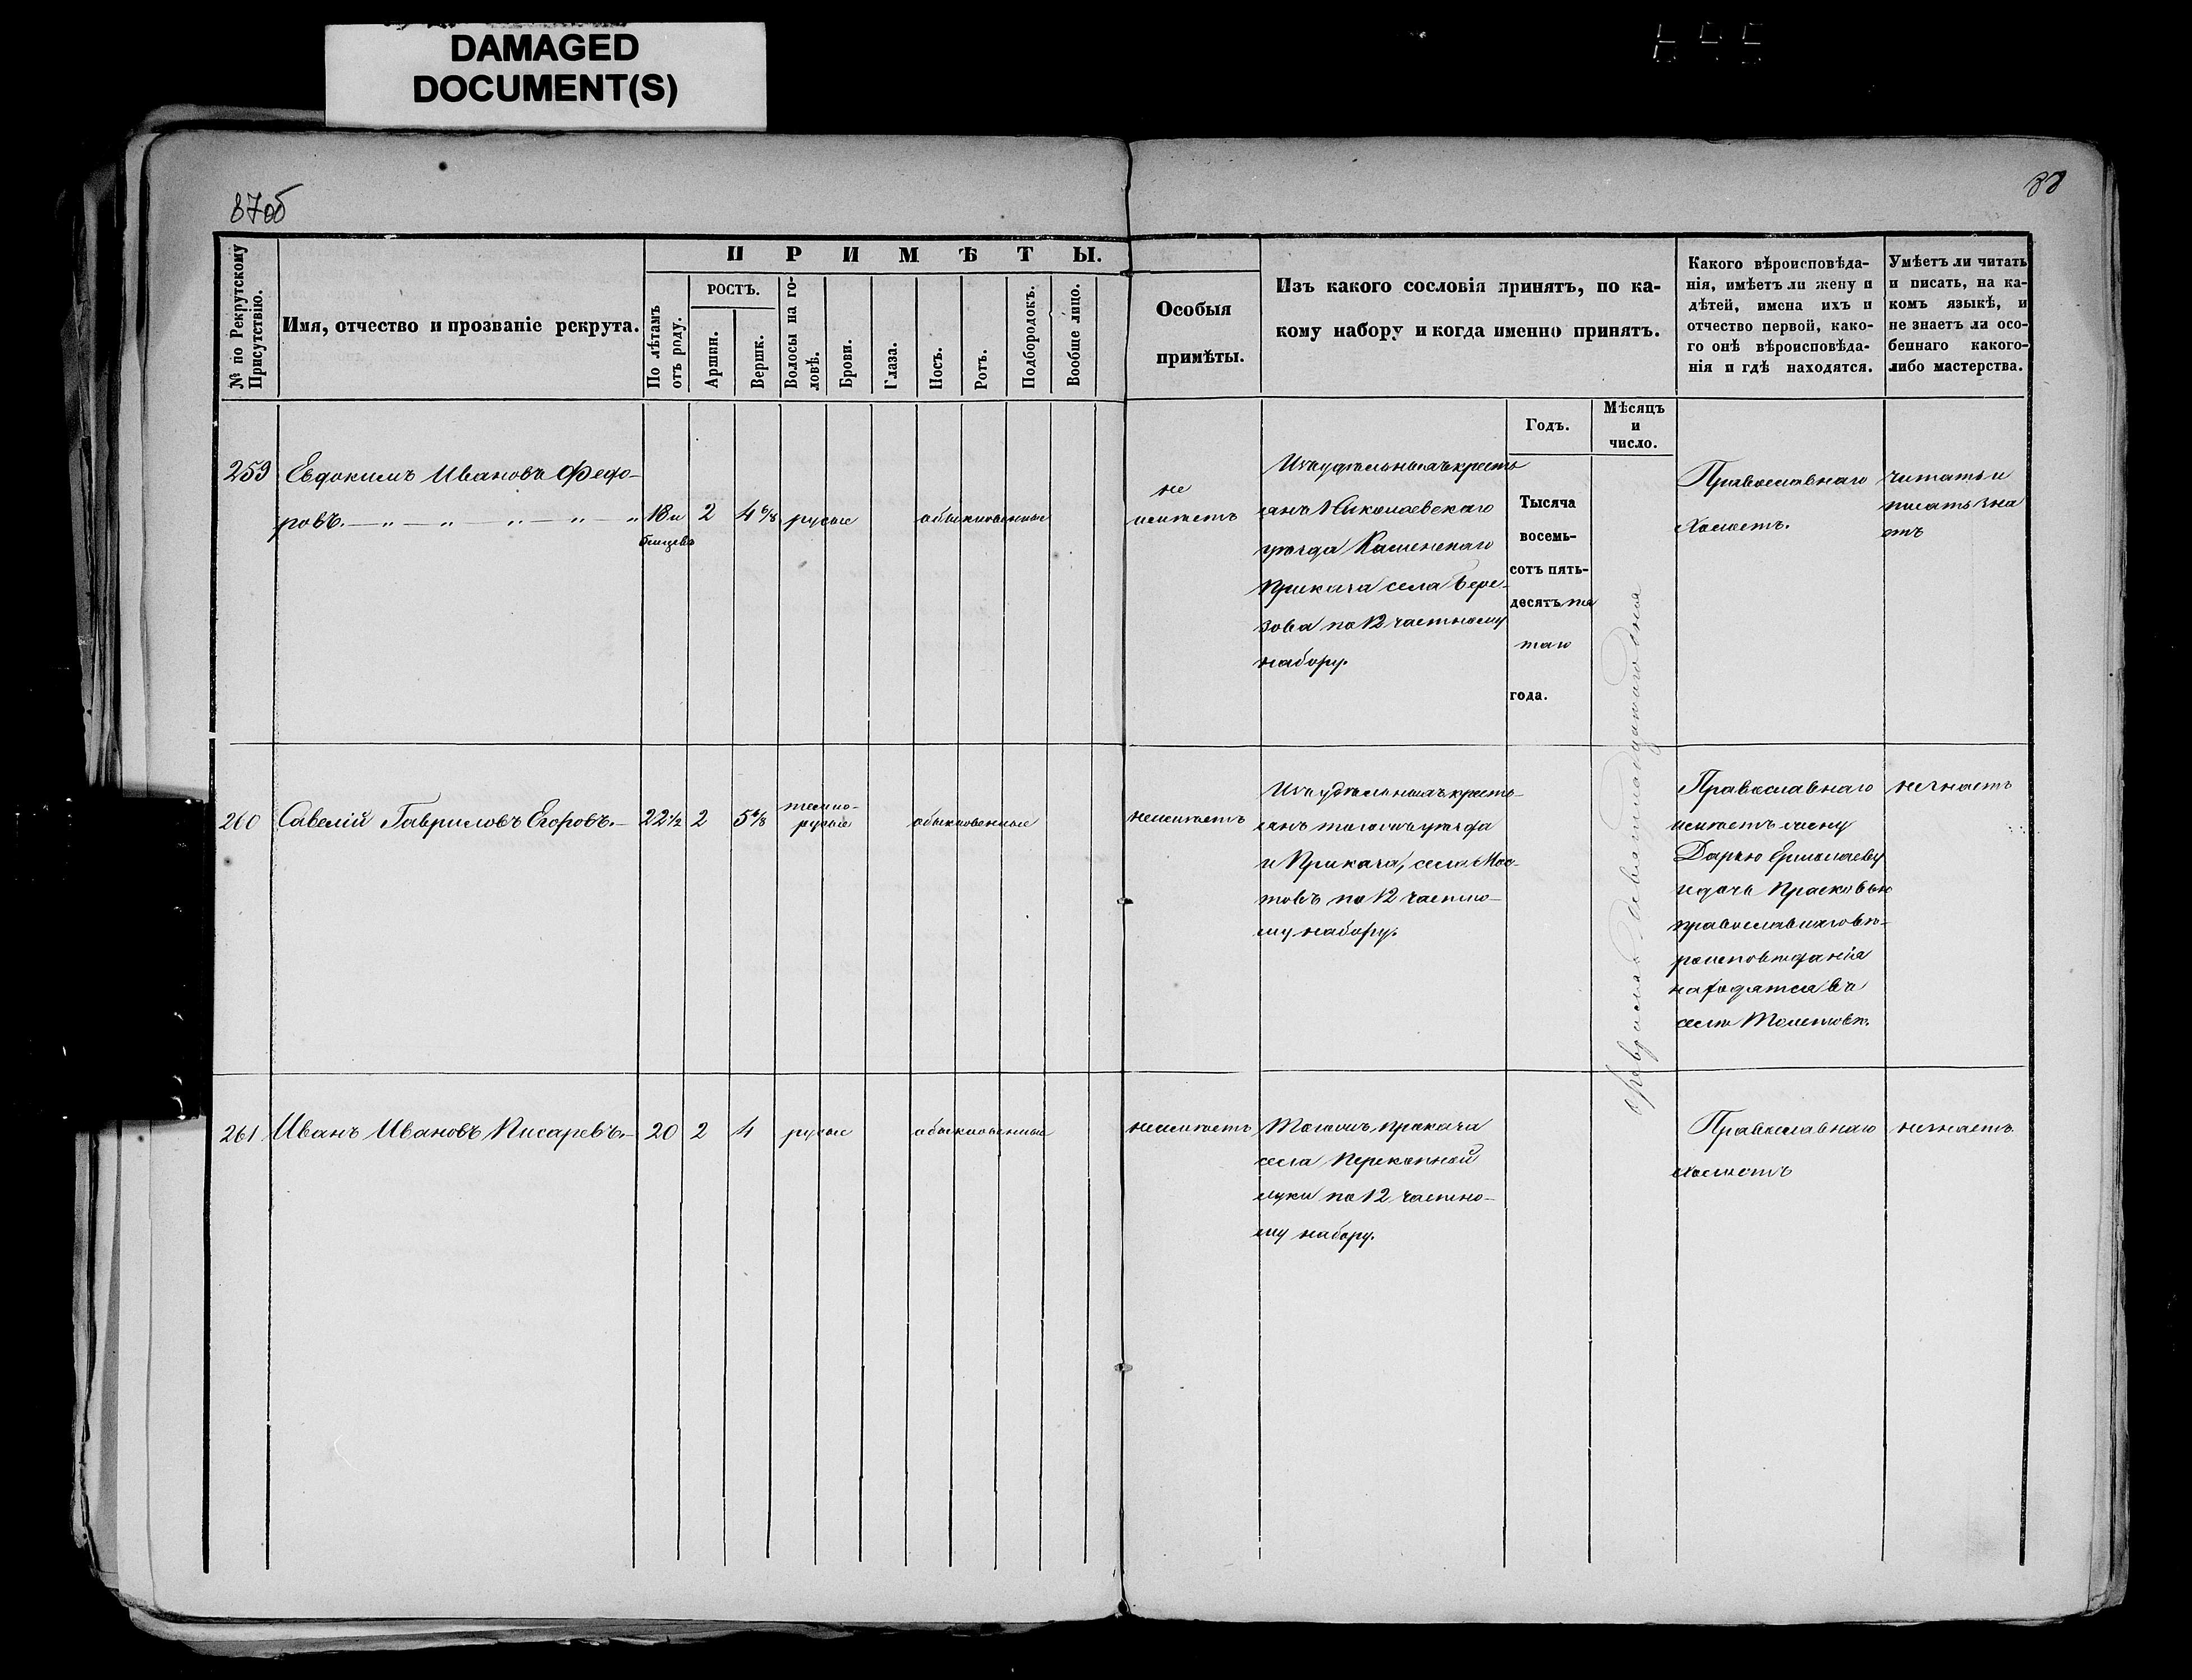 DAMAGED
DOCUMENT(S)
87об
88
№ по Рекрутскому
Присутствію.
Имя, отчество и прозваніе рекрута.
ПРИМѢТЫ.
По лѣтамъ
отъ роду.
РОСТЪ.
Аршин.
Вершк.
Волосы на го-
ловѣ.
Брови.
Глаза.
Носъ.
Ротъ.
Подбородокъ.
Вообще лицо.
Особыя
примѣты.
Изъ какого сословія принятъ, по ка-
кому набору и когда именно принятъ.
Какого вѣроисповѣда-
нія, имѣетъ ли жену и
дѣтей, имена ихъ и
отчество первой, како-
го онѣ вѣроисповѣда-
нія и гдѣ находятся.
Умѣетъ ли читать
и писать, на ка-
комъ языкѣ, и
не знаетъ ли осо-
беннаго какого-
либо мастерства.
Годъ.
Мѣсяцъ
и
число.
259
Евдокимъ Ивановъ Федо-
ровъ. — „ — „ — „ — „ — „
18 и
2
4 6/8
русые
обыкновенные
не
имѣетъ
Изъ удѣльныхъ кресть
янъ Николаевскаго
уѣзда Каменскаго
Приказа села Бере-
зова по 12 частному
набору.
Тысяча
восемь-
сотъ пять-
десятъ пя
таго
года.
Февраля девятнадцатаго дня
Православнаго
Холостъ.
Читать и
писать зна
етъ
260
Савелій Гавриловъ Егоровъ.—
22 1/2
2
5 4/8
темно-
русые
обыкновенные
неимѣетъ
Изъ удѣльныхъ кресть-
янъ тогожъ уѣзда
и Приказа, села Мос-
товъ по 12 частно-
му набору.
Православнаго
имѣетъ жену
Дарью Ермолаеву
и дочь Прасковью
православнаго вѣ-
роисповѣданія
находятся въ
селѣ
незнаетъ
261
Иванъ Ивановъ Писаревъ.—
20
2
4
русые
обыкновенные
неимѣетъ
Тогожъ приказа
села Перекопной
луки по 12 частно-
му набору.
Православнаго
холостъ
незнаетъ.